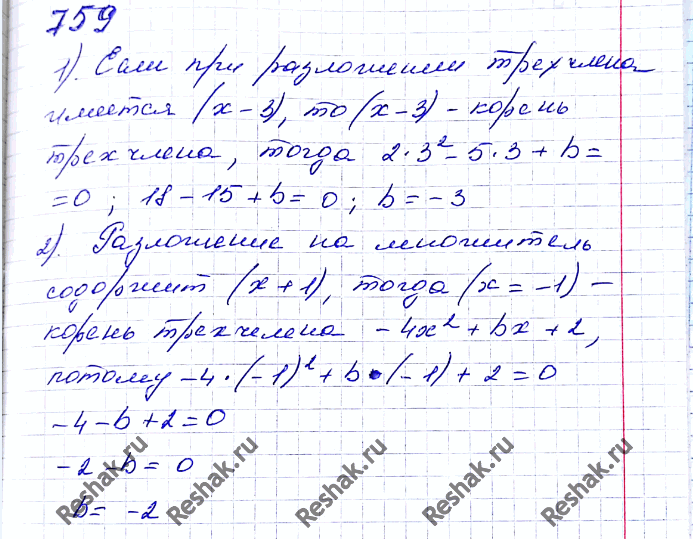 759
1). Если при разложении трехчлена
имеется (x-3), то (x-3) - корень
трехчлена, тогда 2·3²-5·3+b=
=0; 18-15+b=0; b=-3
2). Разложение на множитель
содержит (x+1), тогда (x=-1) -
корень трехчлена -4x²+bx+2,
потому -4·(-1)²+b·(-1)+2=0
-4-b+2=0
-2-b=0
b=-2
Reshak.ru
Reshak.ru
Reshak.ru
Reshak.ru
Reshak.ru